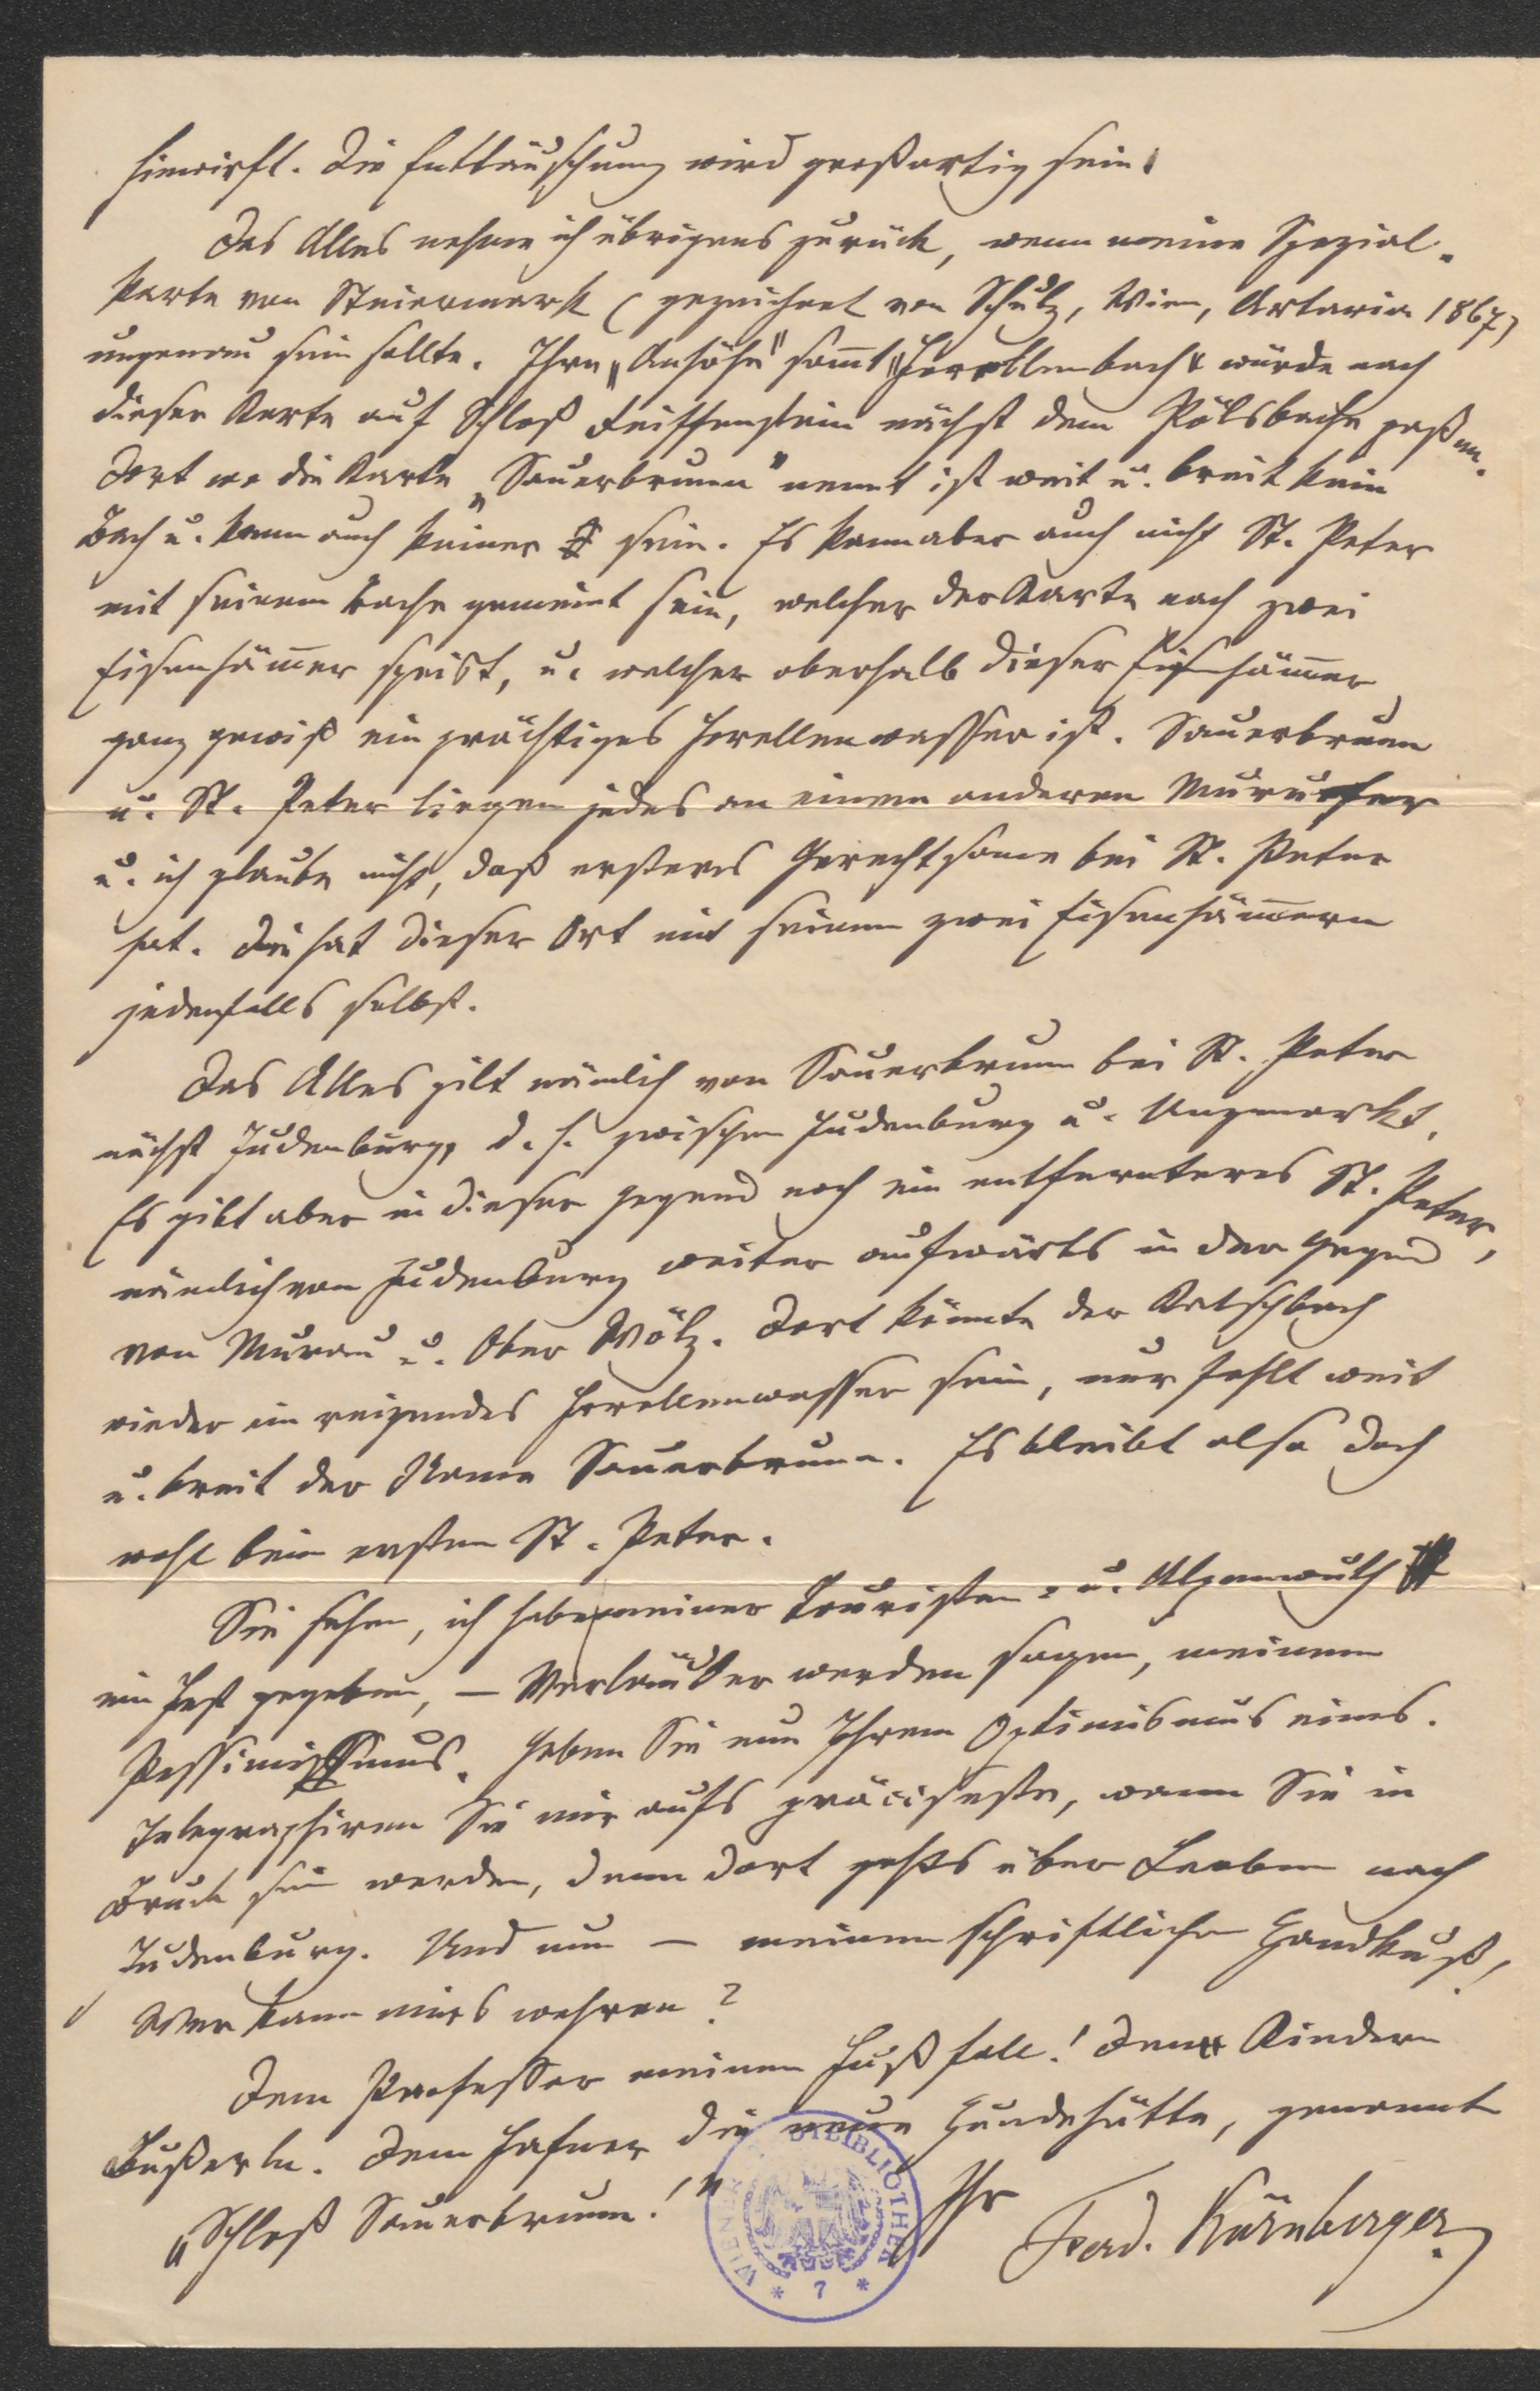 hinwirft. Die Enttäuschung wird großartig sein.
Das Alles nehme ich übrigens zurück, wenn meine Spezial-
karte von Steiermark (gezeichnet von Schulz, Wien, Artaria 1867)
ungenau sein sollte. Ihre „Anhöhe" sammt „Forellenbach" würde nach
dieser Karte auf Schloß Reiffenstein nächst dem Pölsbache paßen.
Dort wo die Karte „Sauerbrunn" nennt ist weit u. breit kein
Bach u. kann auch keiner sein. Es kann aber auch nicht St. Peter
mit seinem Bache gemeint sein, welcher der Karte nach zwei
Eisenhämmer speist, u. welcher oberhalb dieser Eisenhämmer
ganz gewiß ein prächtiges Forellenwasser ist. Sauerbrunn
u. St. Peter liegen jedes an einem anderen Murufer
u. ich glaube nicht, daß ersteres Gerechtsame bei St. Peter
hat. Die hat dieser Ort mit seinen zwei Eisenhämmern
jedenfalls selbst.
Das Alles gilt nämlich von Sauerbrunn bei St. Peter
nächst Judenburg, d. h. zwischen Judenburg u. Unzmarkt.
Es gibt aber in dieser Gegend noch ein entfernteres St. Peter,
nämlich von Judenburg weiter aufwärts in der Gegend
von Murau u. Ober Wölz. Dort könnte der Katschbach
wieder ein reizendes Forellenwasser sein, nur fehlt weit
u. breit der Name Sauerbrunn. Es bleibt also doch
wohl beim ersten St. Peter.
Sie sehen, ich habe meiner Touristen- u. Alpenwuth
ein Fest gegeben, – Verläumder werden sagen, meinem
Pessimismus. Geben Sie nun Ihrem Optimismus eines.
Telegraphiren Sie mir aufs präciseste, wann Sie in
Bruck sein werden, denn dort gehts über Leoben nach
Judenburg. Und nun – meinen schriftlichen Handkuß!
Wer kann mirs wehren?
Dem Professor meinen Fußfall! Den Kindern
Bußerln. Dem Hafner die neue Hundehütte, genannt
„Schloß Sauerbrunn!" Ihr Ferd. Kürnberger
WIENER STADTBIBLIOTHEK
* 7 *